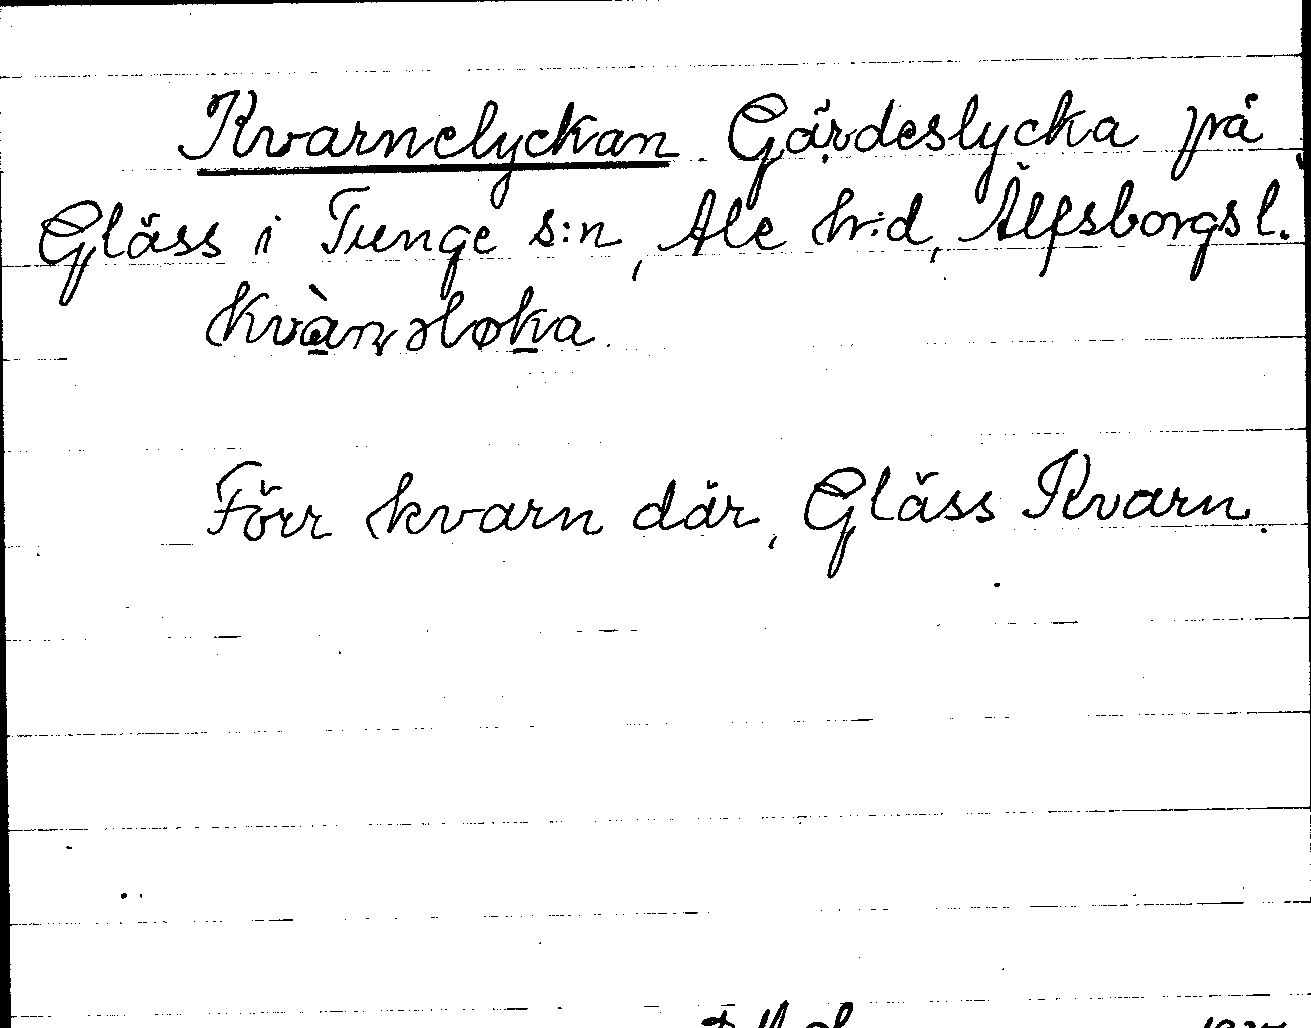 Kvarnelyckan. Gärdeslycka på
Gläss i Tunge s:n, Ale h:d, Älfsborgs l.
kvàṇəløka.
Förr kvarn där, Gläss Kvarn.